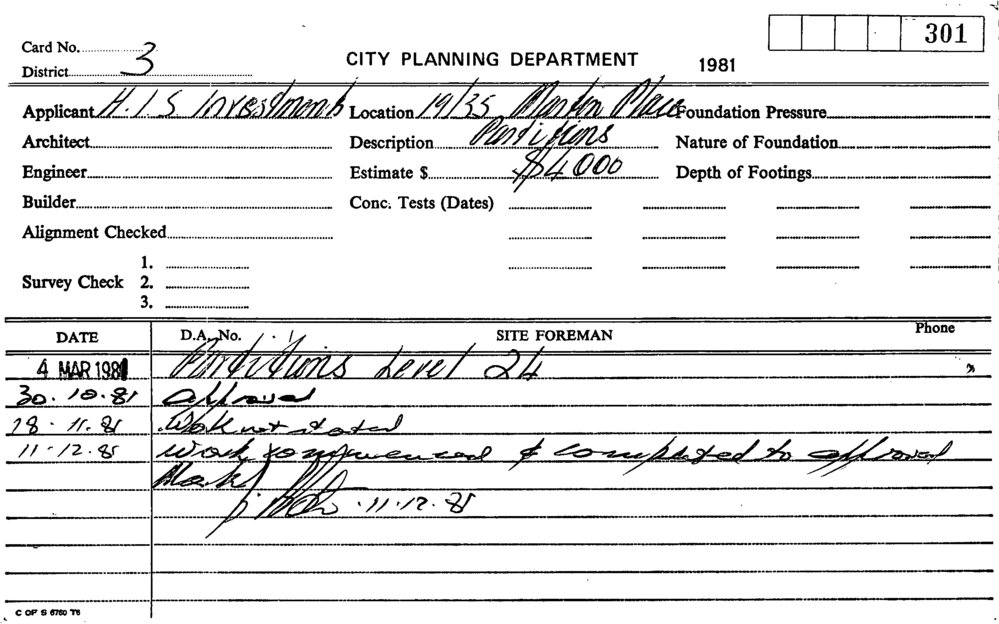 301
Card No.
District 3
CITY PLANNING DEPARTMENT 1981
Applicant H.I.S Investments Location 19/35 Martin Place Foundation Pressure
Architect Description Partitions Nature of Foundation
Engineer Estimate $ $4000 Depth of Footings
Builder Conc. Tests (Dates)
Alignment Checked
1.
Survey Check 2.
3.
DATE D.A. No. SITE FOREMAN Phone
4 MAR 1981 Partitions Level 24
30.10.81 approved
18.11.81 Work not started
11.12.81 Work commenced & completed to approved
11.12.81
C OF S 6760 T6